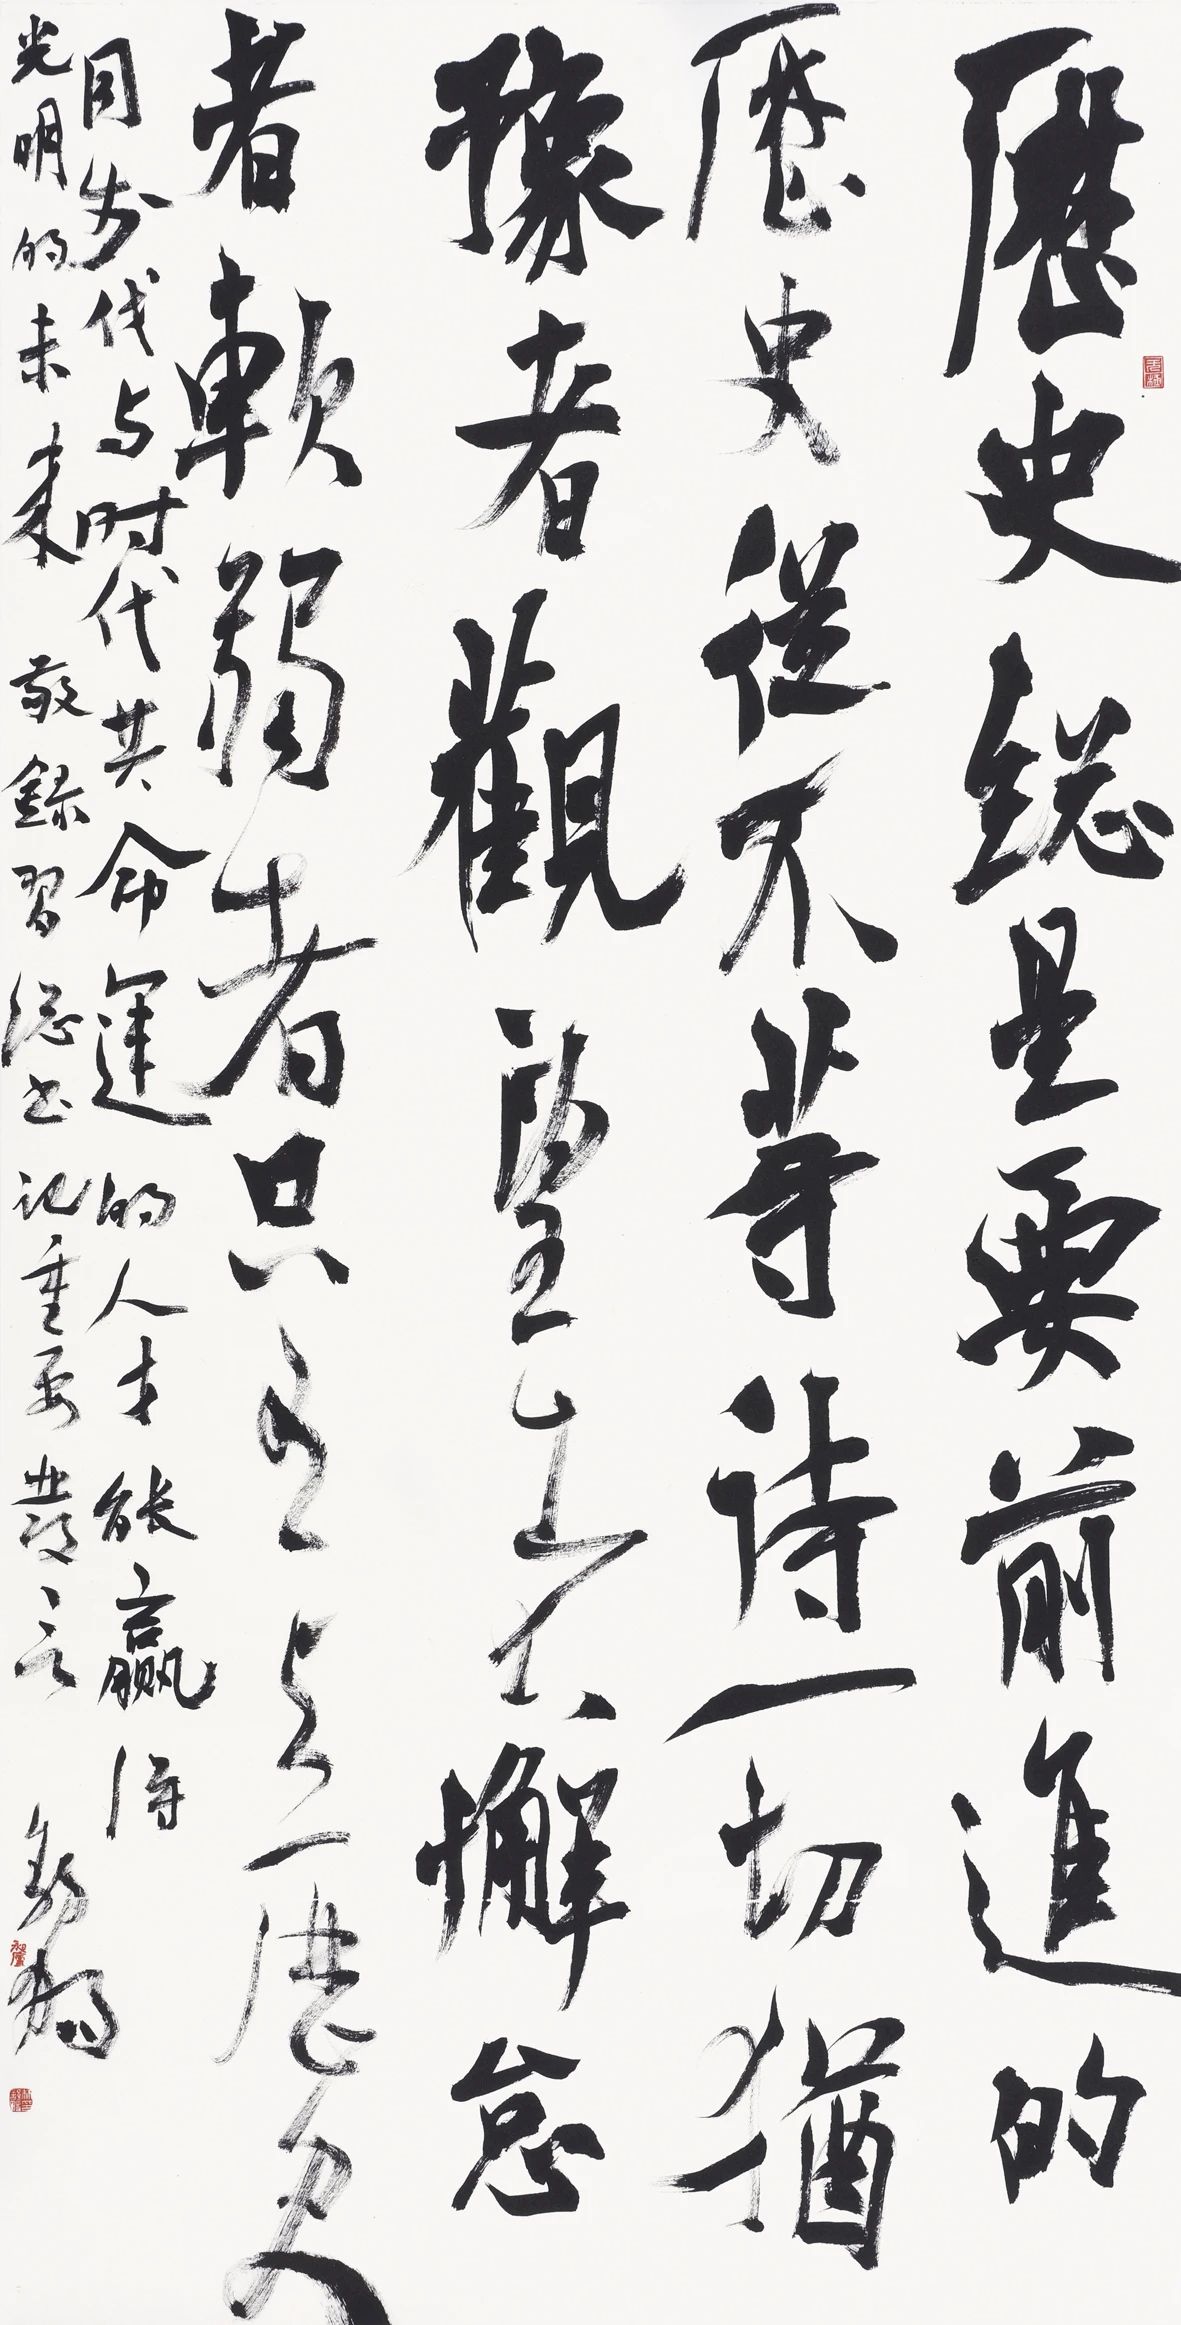 歷史總是要前進的
歷史從不等待一切猶
豫者觀望者懈怠
者軟弱者只有与歷史
同步伐与时代共命運的人才能赢得
光明的未来 敬錄習總书记重要發言